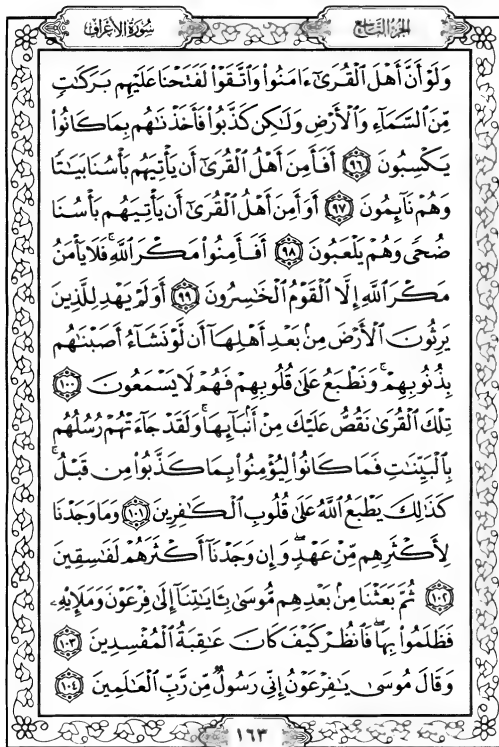 سُورَةُ الأَعْرَافِ
الجُزْءُ التَّاسِعُ
وَلَوْ أَنَّ أَهْلَ ٱلْقُرَىٰٓ ءَامَنُوا۟ وَٱتَّقَوْا۟ لَفَتَحْنَا عَلَيْهِم بَرَكَٰتٍ
مِّنَ ٱلسَّمَآءِ وَٱلْأَرْضِ وَلَٰكِن كَذَّبُوا۟ فَأَخَذْنَٰهُم بِمَا كَانُوا۟
يَكْسِبُونَ ٩٦ أَفَأَمِنَ أَهْلُ ٱلْقُرَىٰٓ أَن يَأْتِيَهُم بَأْسُنَا بَيَٰتًا
وَهُمْ نَآئِمُونَ ٩٧ أَوَأَمِنَ أَهْلُ ٱلْقُرَىٰٓ أَن يَأْتِيَهُم بَأْسُنَا
ضُحًى وَهُمْ يَلْعَبُونَ ٩٨ أَفَأَمِنُوا۟ مَكْرَ ٱللَّهِ ۚ فَلَا يَأْمَنُ
مَكْرَ ٱللَّهِ إِلَّا ٱلْقَوْمُ ٱلْخَٰسِرُونَ ٩٩ أَوَلَمْ يَهْدِ لِلَّذِينَ
يَرِثُونَ ٱلْأَرْضَ مِنۢ بَعْدِ أَهْلِهَآ أَن لَّوْ نَشَآءُ أَصَبْنَٰهُم
بِذُنُوبِهِمْ ۚ وَنَطْبَعُ عَلَىٰ قُلُوبِهِمْ فَهُمْ لَا يَسْمَعُونَ ١٠٠
تِلْكَ ٱلْقُرَىٰ نَقُصُّ عَلَيْكَ مِنْ أَنۢبَآئِهَا ۚ وَلَقَدْ جَآءَتْهُمْ رُسُلُهُم
بِٱلْبَيِّنَٰتِ فَمَا كَانُوا۟ لِيُؤْمِنُوا۟ بِمَا كَذَّبُوا۟ مِن قَبْلُ ۚ
كَذَٰلِكَ يَطْبَعُ ٱللَّهُ عَلَىٰ قُلُوبِ ٱلْكَٰفِرِينَ ١٠١ وَمَا وَجَدْنَا
لِأَكْثَرِهِم مِّنْ عَهْدٍ ۖ وَإِن وَجَدْنَآ أَكْثَرَهُمْ لَفَٰسِقِينَ
١٠٢ ثُمَّ بَعَثْنَا مِنۢ بَعْدِهِم مُّوسَىٰ بِـَٔايَٰتِنَآ إِلَىٰ فِرْعَوْنَ وَمَلَإِي۟هِۦ
فَظَلَمُوا۟ بِهَا ۖ فَٱنظُرْ كَيْفَ كَانَ عَٰقِبَةُ ٱلْمُفْسِدِينَ ١٠٣
وَقَالَ مُوسَىٰ يَٰفِرْعَوْنُ إِنِّى رَسُولٌ مِّن رَّبِّ ٱلْعَٰلَمِينَ ١٠٤
١٦٣